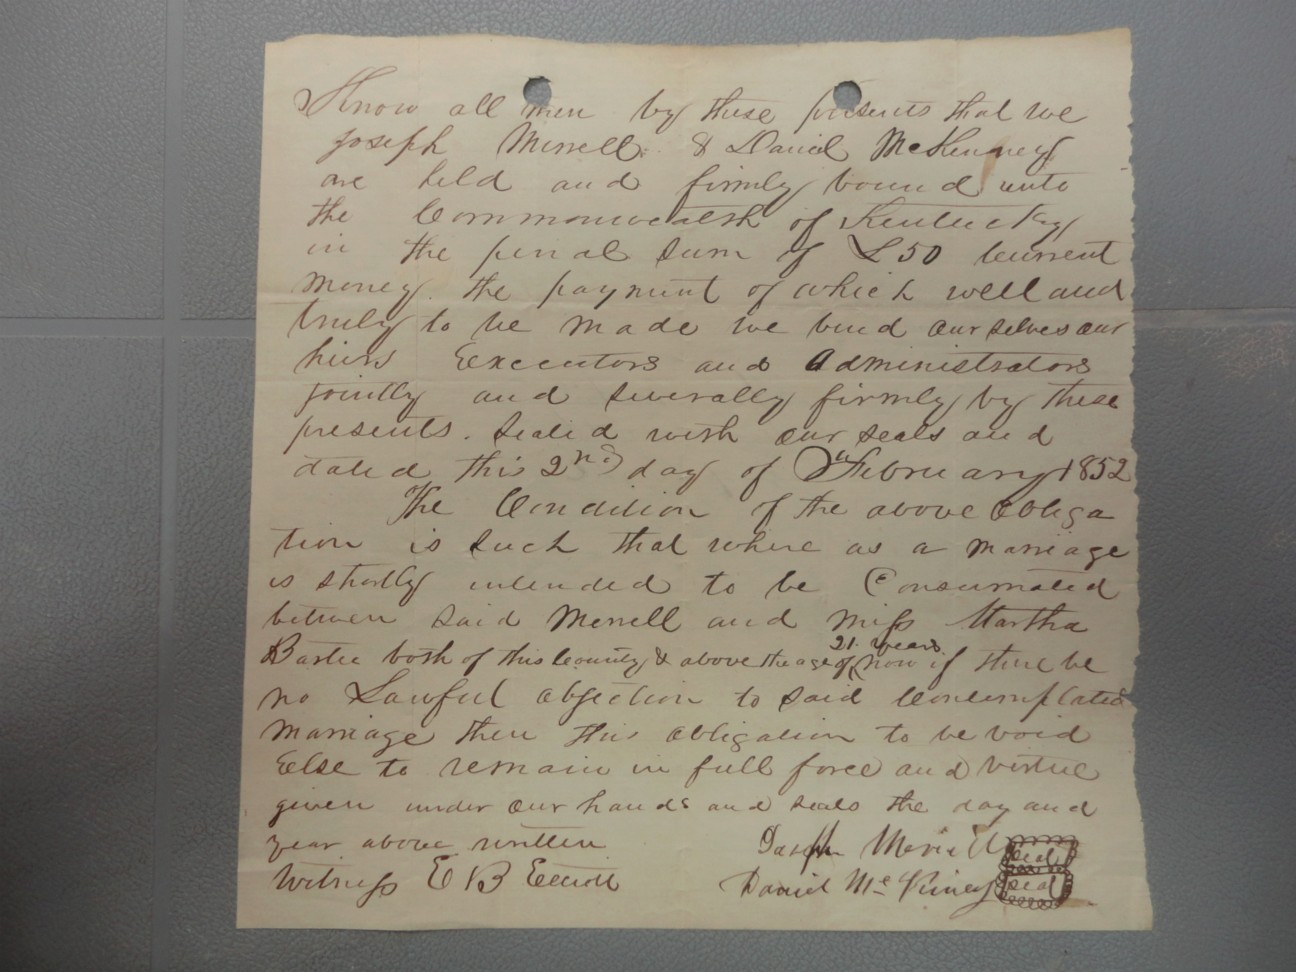 Know all men by these presents that we
Joseph Merrell & David McKenney
are held and firmly bound unto
the Commonwealth of Kentucky
in the penal sum of £50 Current
money. the payment of which well and
truly to be made we bind our selves our
heirs Executors and Administrators
jointly and severally firmly by these
presents. Sealed with our seals and
dated this 2nd day of February 1852
The Condition of the above obliga
tion is such that where as a marriage
is shortly intended to be Consumated
between said Merrell and Miss Martha
21 years
Bastee both of this County & above the age of now if there be
no Lawful objection to said Contemplated
marriage then this obligation to be void
Else to remain in full force and virtue
given under our hands and seals the day and
year above written
Joseph Merrell seal
Witness E B Elliott
David McKiney seal